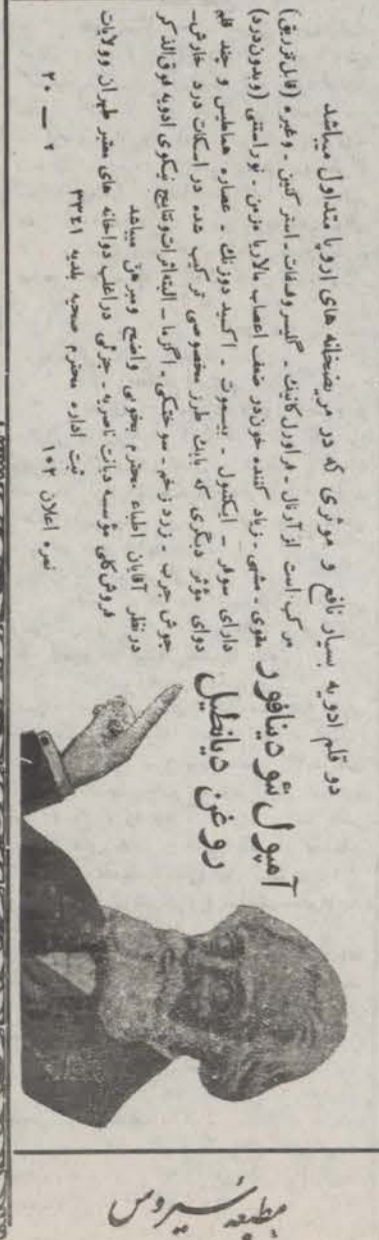 دو قلم ادویه بسیار نافع و موثری که در مریضخانه های اروپا متداول میباشد
آمپول نئودینافور
مرکب است از آرنال - فراورل کانیک - گلیسروفسفات - استرکنین - وغیره (قابل تزریق)
مقوی - مشهی - زیاد کننده خون در ضعف اعصاب مالاریا مزمن - نوراستنی (وبدون درد)
روغن دیانطیل
دارای سولفر - ایکتیول - بیسموت - اکسید دوزنک - عصاره هماملیس و چند قلم
دوای مؤثر دیگری که بابک طرز مخصوصی ترکیب شده در اسکات درد خارش -
جوش جرب - زرد زخم - سوختگی - اگزما - البته اثرات و نتایج نیکوی ادویه فوق الذکر
در نظر آقایان اطباء محترم بخوبی واضح ومبرهن میباشد
فروش کلی مؤسسه دیانت ناصریه - جزئی در اغلب دواخانه های معتبر طهران وولایات
ثبت اداره محترم صحیه بلدیه ۳۳۴۱
نمره اعلان ۱۰۲
۲ — ۲۰
مطبعه سیروس